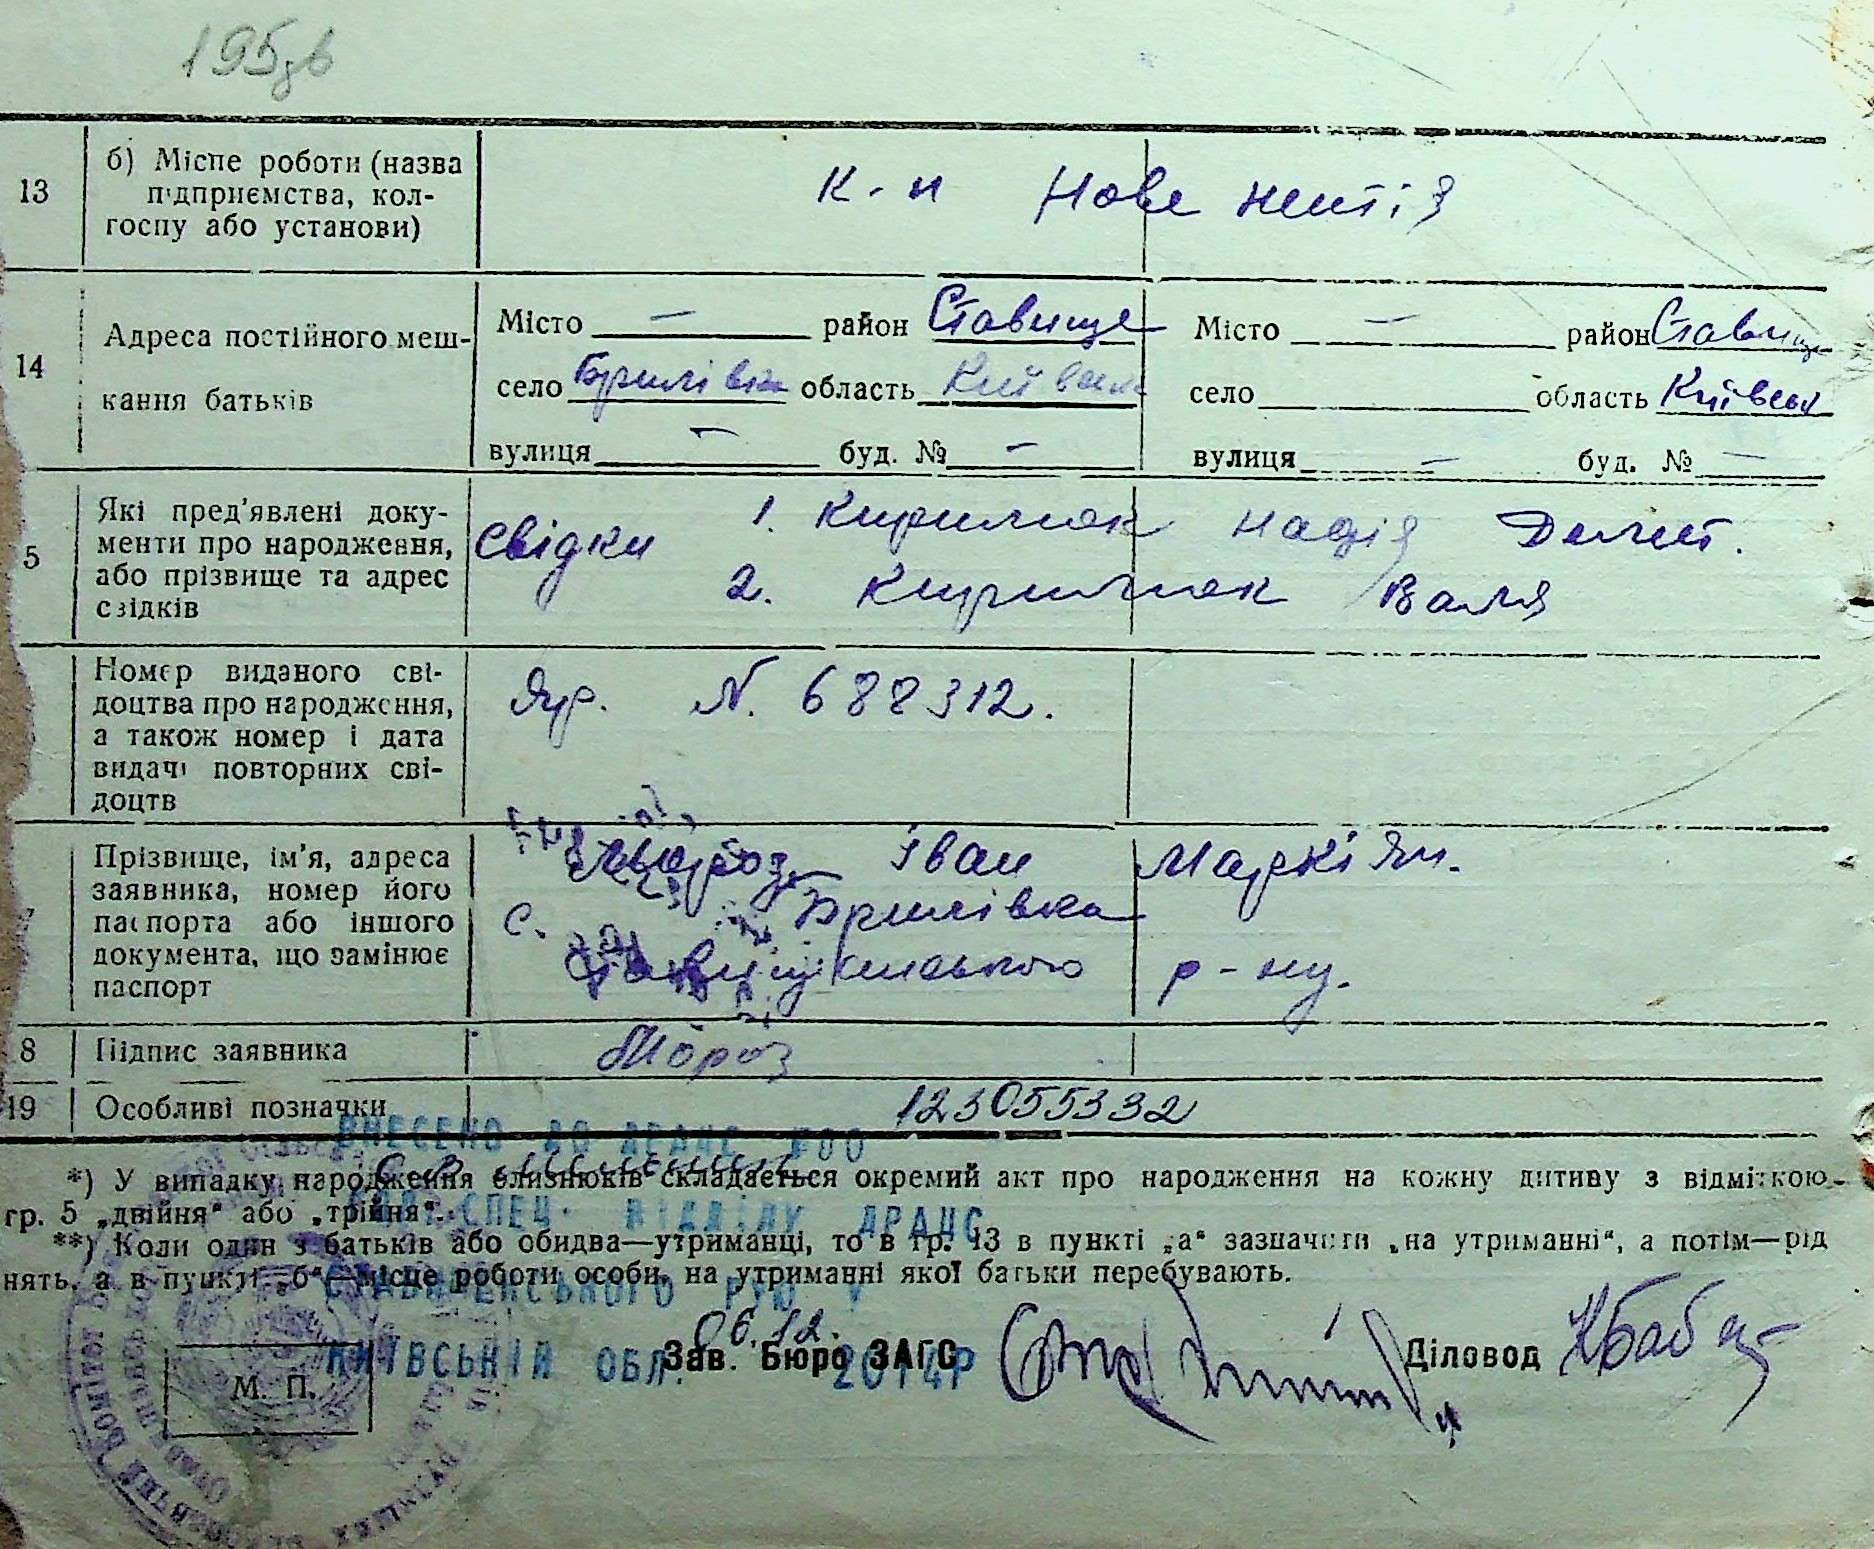 195зв
13
б) Місце роботи (назва
підприємства, кол-
госпу або установи)
к-п Нове життя
14
Адреса постійного меш-
кання батьків
Місто — район Ставище
село Брилівка область Київськ
вулиця — буд. № —
Місто — район Ставище
село область Київськ
вулиця — буд. № —
5
Які пред'явлені доку-
менти про народження,
або прізвище та адрес
свідків
свідки 1. Кирилюк Надія
2. Кирилюк Валя
Номер виданого сві-
доцтва про народження,
а також номер і дата
видачі повторних сві-
доцтв
N. 688312.
7
Прізвище, ім'я, адреса
заявника, номер його
паспорта або іншого
документа, що замінює
паспорт
Мороз Іван Маркіян.
с. Брилівка
Ставищанського р-ну.
8
Підпис заявника
Мороз
19
Особливі позначки
123055332
ВНЕСЕНО ДО ДРАЦС
*) У випадку народження близнюків складається окремий акт про народження на кожну дитину з відміткою
гр. 5 „двійня" або „трійня".
СПЕЦ. ВІДДІЛУ ДРАЦС
**) Коли один з батьків або обидва—утриманці, то в гр. 13 в пункті „а" зазначити „на утриманні", а потім—рід
нять, а в пункті „б"—місце роботи особи, на утриманні якої батьки перебувають.
СТАВИЩЕНСЬКОГО РУЮ У
КИЇВСЬКІЙ ОБЛ.
06.12.
2014Р
Зав. Бюро ЗАГС
Діловод
М. П.